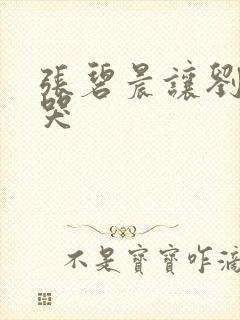 張碧晨讓劉
哭
不是寶寶咋滴